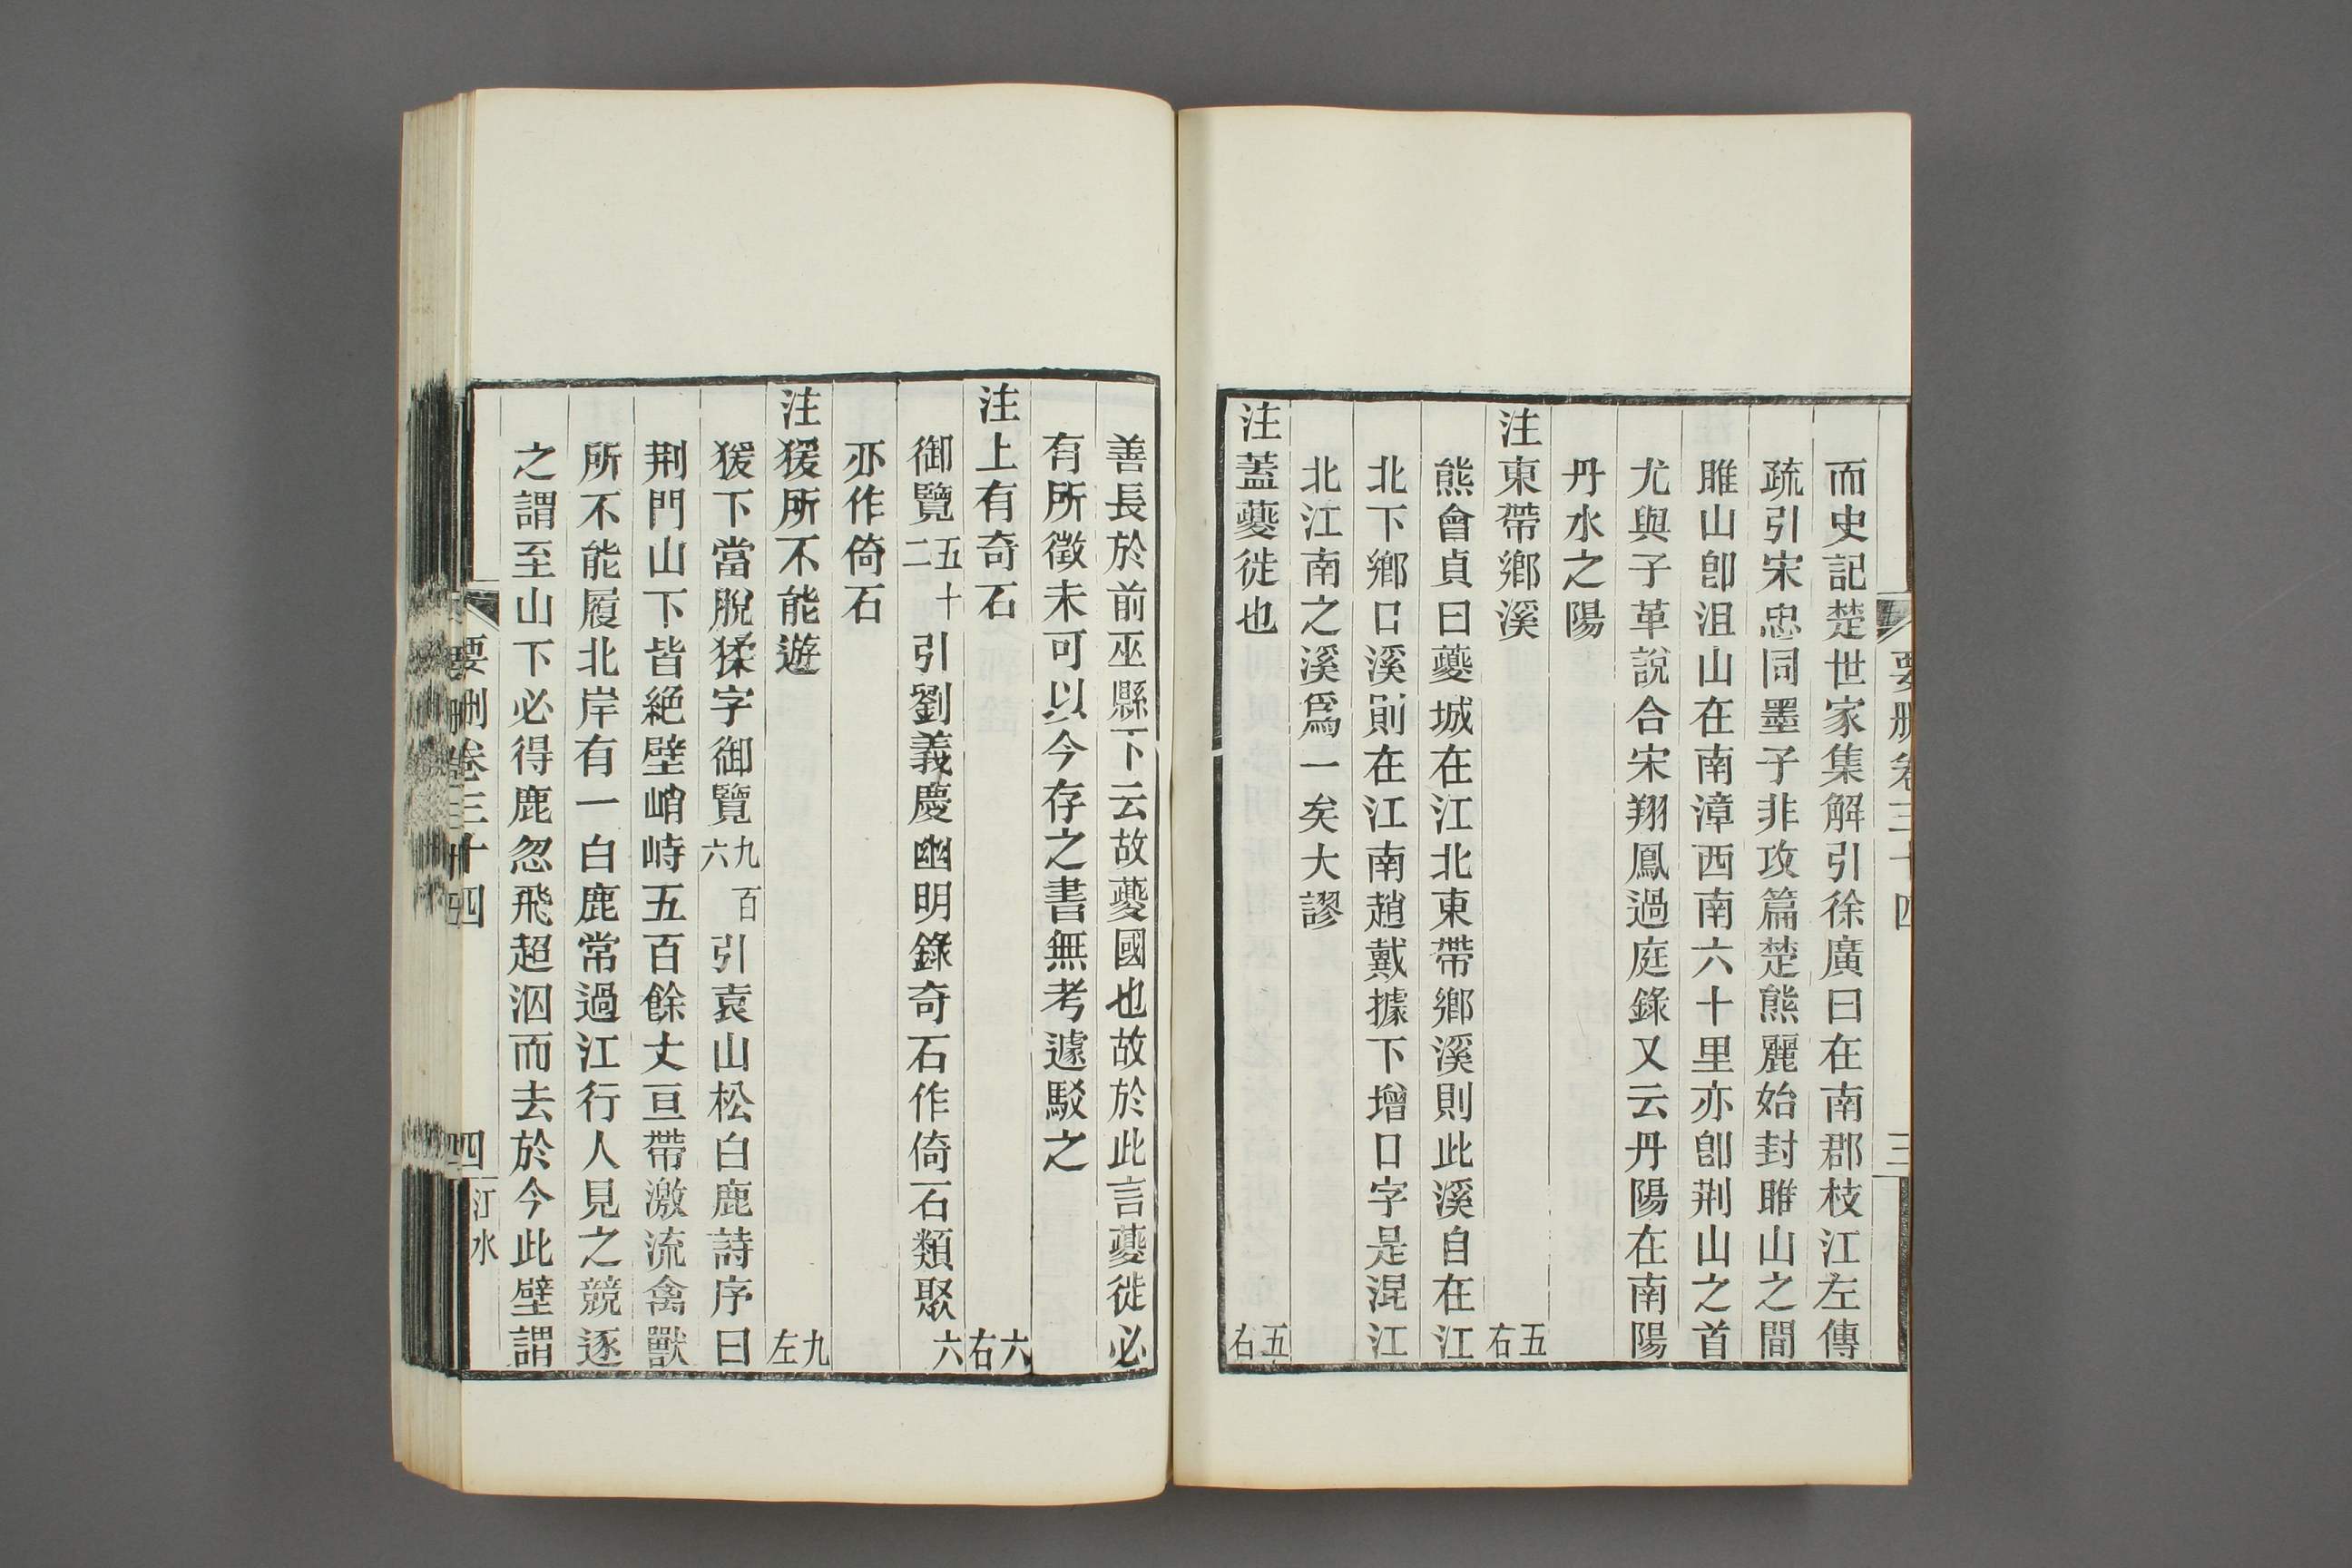 要刪卷三十四 三
而史記楚世家集解引徐廣曰在南郡枝江左傳
疏引宋忠同墨子非攻篇楚熊麗始封雎山之間
雎山卽沮山在南漳西南六十里亦卽荆山之首
尤與子革說合宋翔鳳過庭錄又云丹陽在南陽
丹水之陽
注東帶鄉溪 五右
熊會貞曰夔城在江北東帶鄉溪則此溪自在江
北下鄉口溪前在江南趙戴據下增口字是混江
北江南之溪爲一矣大謬
注蓋夔徙也 五右
善長於前巫縣下云故夔國也故於此言夔徙必
有所徵未可以今存之書無考遽駁之
注上有奇石 六右
御覽五十二引劉義慶幽明錄奇石作倚石類聚六
亦作倚石
注猨所不能遊 九左
猨下當脫猱字御覽九百六引袁山松白鹿詩序曰
荆門山下皆絕壁峭峙五百餘丈亘帶激流禽獸
所不能履北岸有一白鹿常過江行人見之競逐
之謂至山下必得鹿忽飛超泅而去於今此壁謂
要刪卷三十四 四 江水